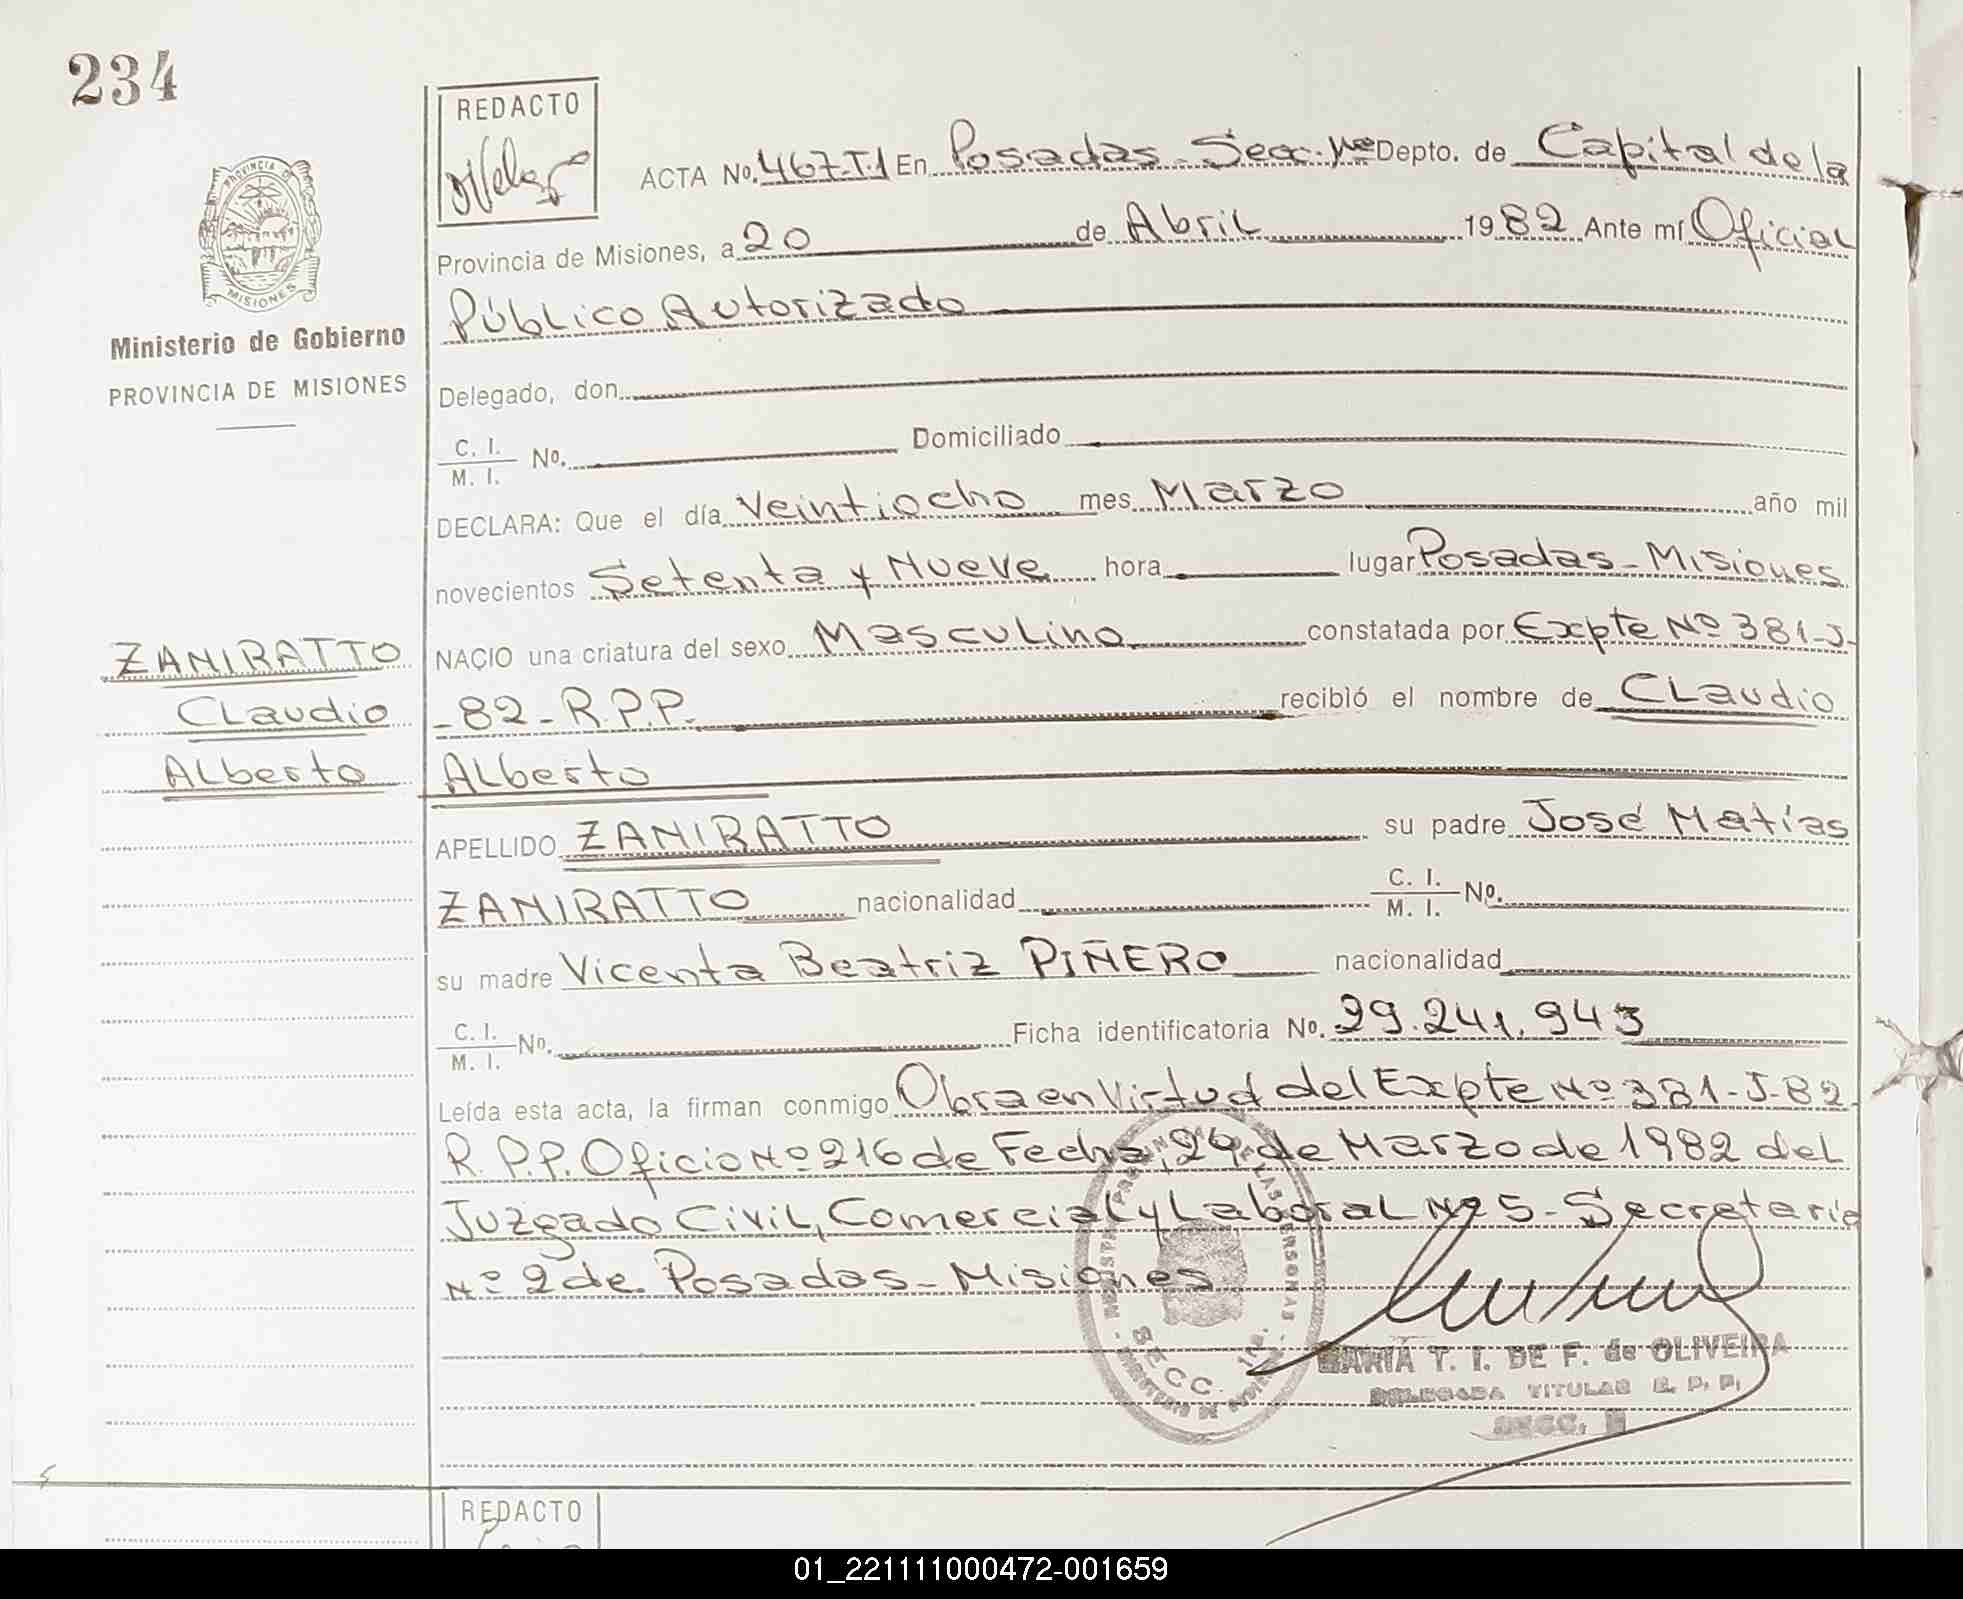 234
REDACTO
ACTA No. 467-T.1 En Posadas - Secc. Depto. de Capital de la
Provincia de Misiones, a 20 de Abril 1982 Ante mí Oficial
Público Autorizado
PROVINCIA DE
MISIONES
Ministerio de Gobierno
PROVINCIA DE MISIONES
Delegado, don
C. I.
M. I. No. Domiciliado
DECLARA: Que el día Veintiocho mes Marzo año mil
novecientos Setenta y Nueve hora lugar Posadas - Misiones
ZANIRATTO
Claudio
Alberto
NACIO una criatura del sexo Masculino constatada por Expte Nº 381-J-
-82-R.P.P. recibió el nombre de Claudio
Alberto
APELLIDO ZANIRATTO su padre José Matías
ZANIRATTO nacionalidad C. I.
M. I. No.
su madre Vicenta Beatriz PIÑERO nacionalidad
C. I.
M. I. No. Ficha identificatoria No. 29.241.943
Leída esta acta, la firman conmigo Obra en Virtud del Expte Nº 381-J-82
R.P.P. Oficio Nº 216 de Fecha, 29 de Marzo de 1982 del
Juzgado Civil, Comercial y Laboral Nº 5 - Secretaria
Nº 2 de Posadas - Misiones
SECC.
MARIA T. I. DE F. de OLIVEIRA
DELEGADA TITULAR R. P. P.
SECC.
REDACTO
01_221111000472-001659